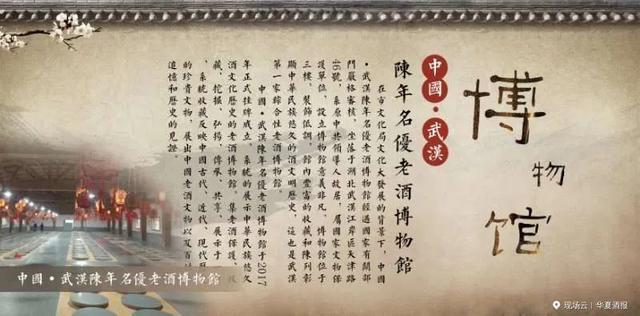 博物馆
中國·武漢
陳年名優老酒博物館
在市文化局文化大發展的背景下，中國
·武漢陳年名優老酒博物館經過國家有關部
門嚴格審核，坐落于湖北武漢江岸區天津路
46號，系原中共領導人故居，屬國家文物保
護單位，設立博物館意義非凡。博物館位于
三樓，裝飾低調，館內豐富的收藏和陳列彰
顯中華民族悠久的酒文明歷史。這也是武漢
第一家綜合性老酒博物館。
中國·武漢陳年名優老酒博物館于2017
年正式挂牌成立，系統的展示中華民族悠久
酒文化歷史的老酒博物館。集老酒保護、收
藏、挖掘、弘揚、傳承、共享、展示于
系統收藏反映中國古代、近代、現代
的珍貴文物，展出中國老酒文物以及百
追憶和歷史的見證。
中國·武漢陳年名優老酒博物館
现场云 | 华夏酒报